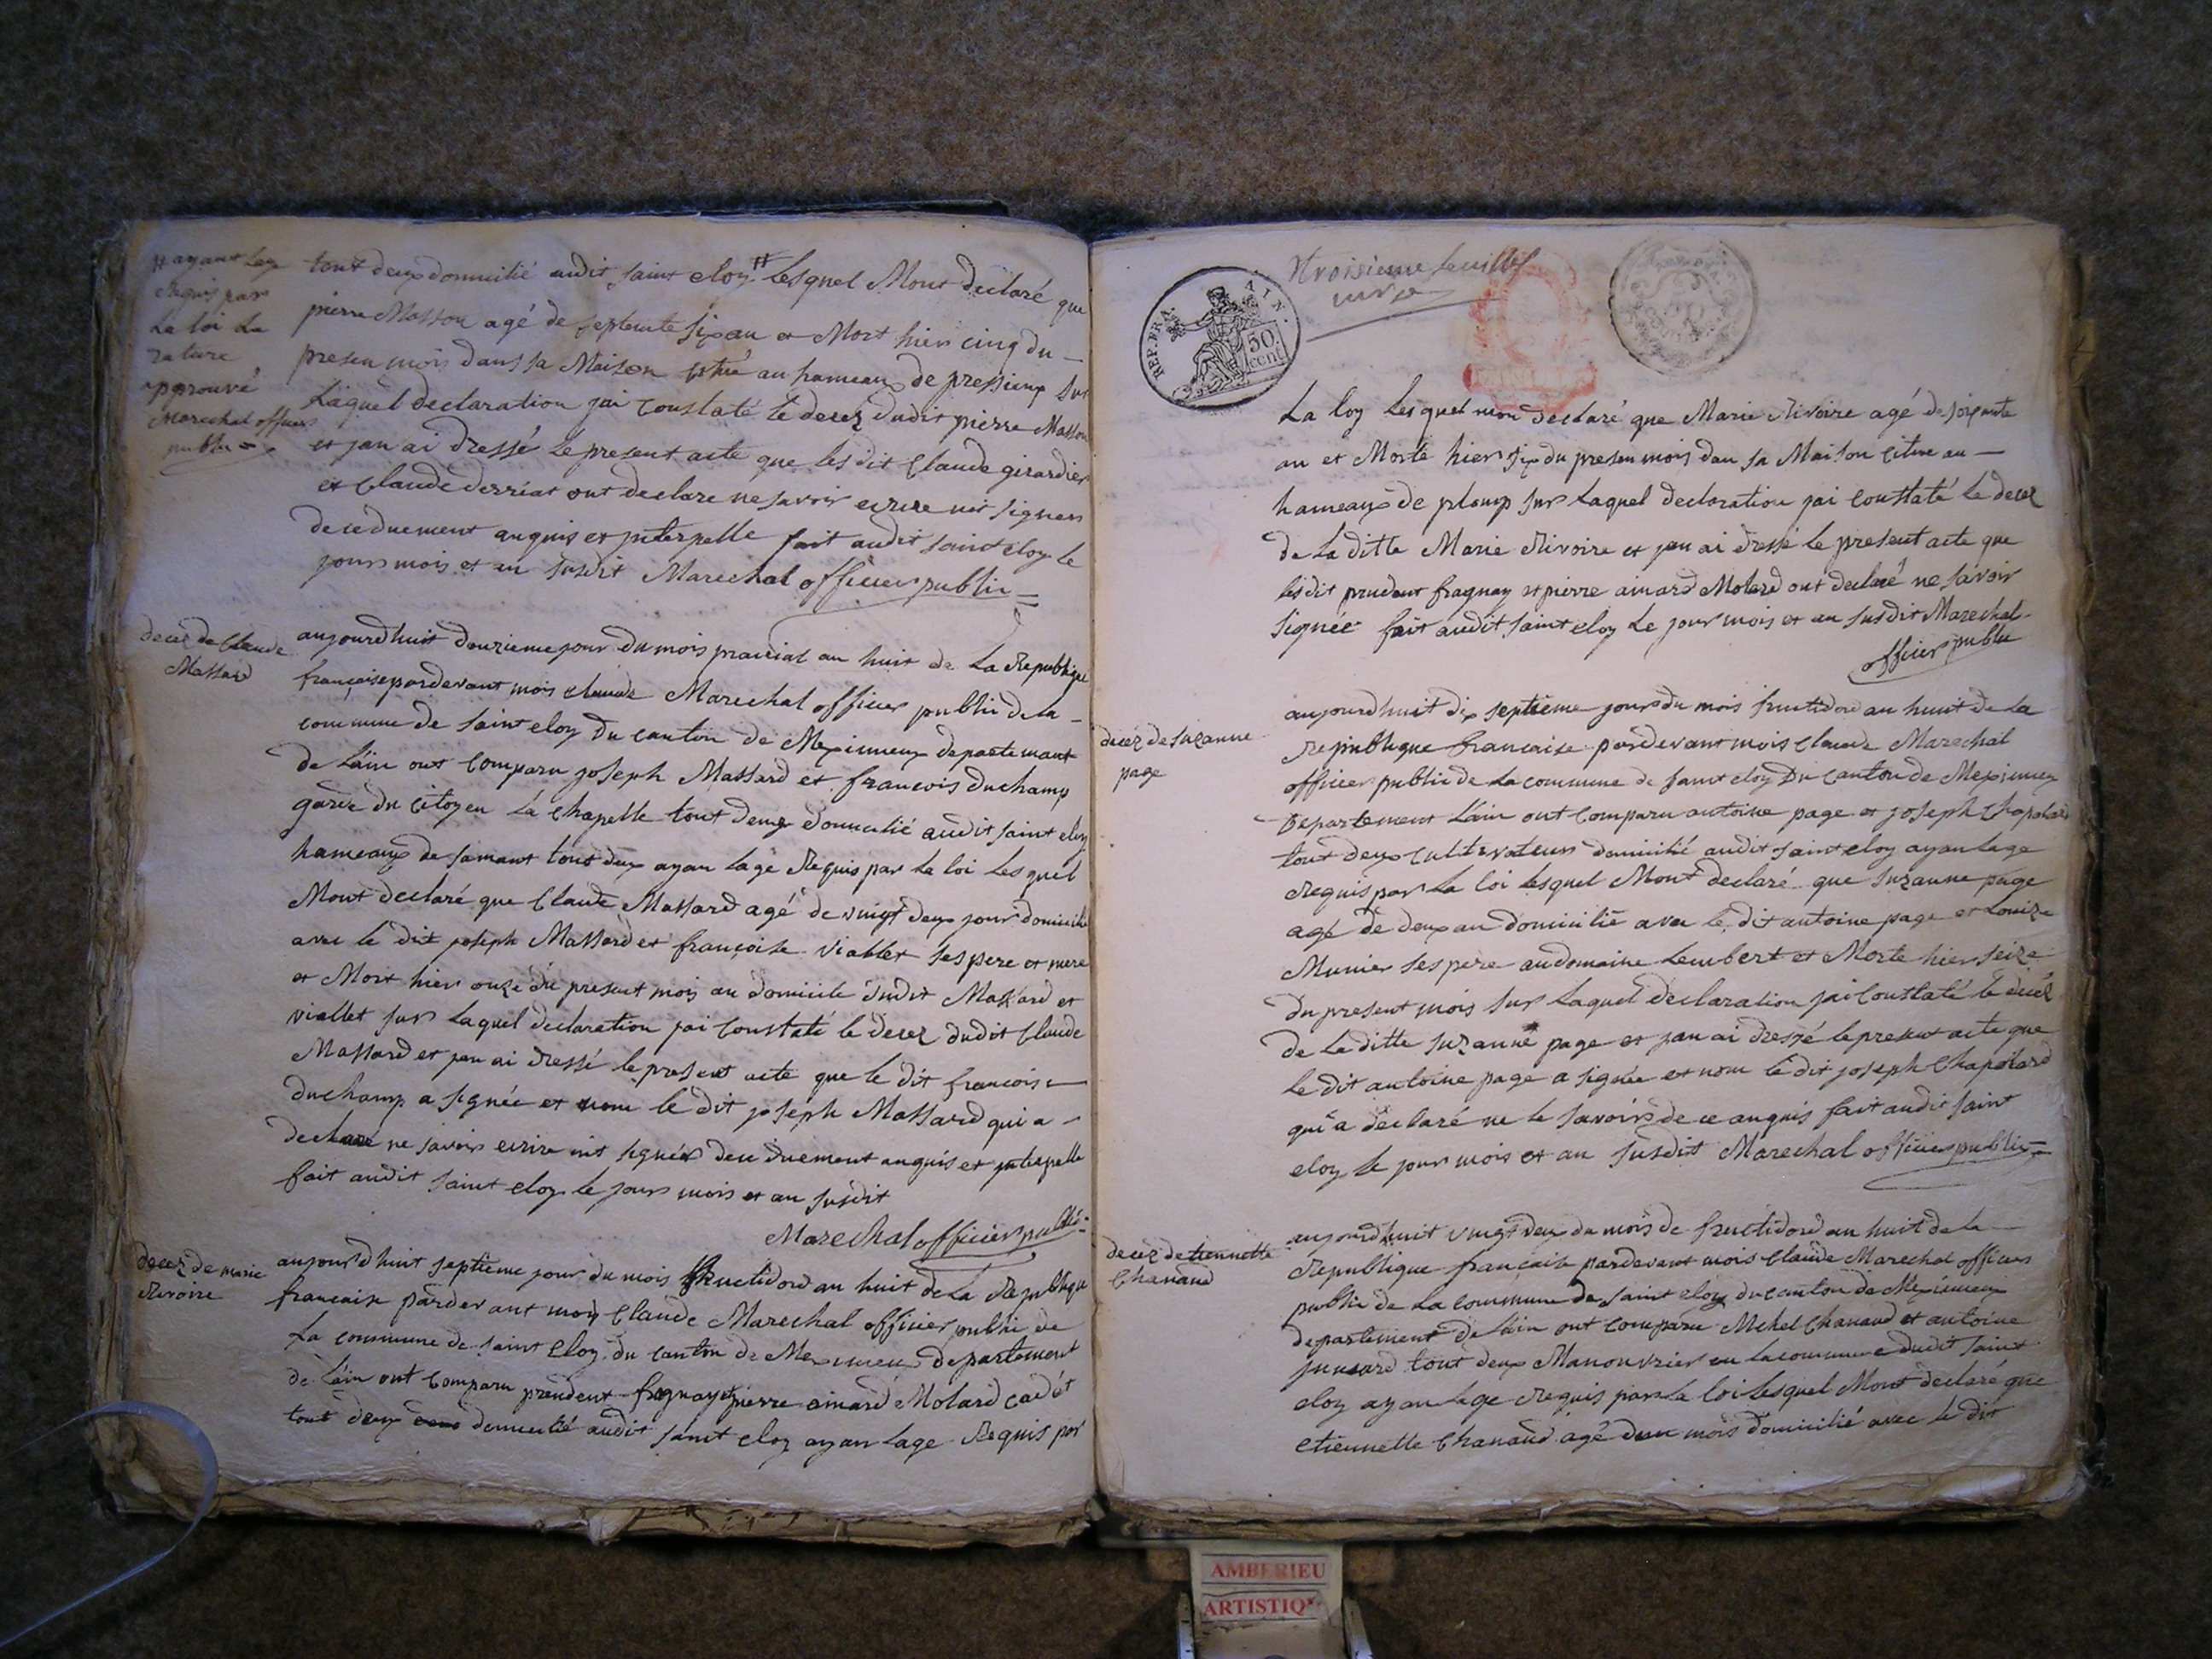 # ayant Lage
requis par
La loi La
rature
approuvé
Marechal officier
public =
tout deux domicilié audit saint eloy # Lesquel Mont declaré que
pierre Masson agé de septente six an et Mort hier cinq du -
presen mois dans sa Maison situé au hameaux de pressieux sur
Laquel declaration jai constaté le decez dudit pierre Masson
et jan ai dressé le present acte que les dit Claude girardier
et Claude derriat ont declare ne savoir ecrire nit signer
de ce duement anquis et interpelle fait audit saint eloy le
jours mois et an susdit Marechal officier public =
decez de Claude
Massard
aujourdhuit douzieme jour du mois prairial an huit de La Republique
française pardevant mois claude Marechal officier public de la -
commune de saint eloy Du canton de Meximieux departemant
de Lain ont comparu joseph Massard et francois duchamp
garde du citoyen La chapelle tout deux domicilié audit saint eloy
hameaux de samant tout deux ayan Lage Requis par La loi Lesquel
Mont declaré que Claude Massard agé de vingt deux jour domicilié
avec le dit joseph Massard et françoise viallet ses pere et mere
et Mort hier onze du present mois au domicile dudit Massard et
viallet sur Laquel declaration jai constaté le decez dudit Claude
Massard et jan ai dressé le present acte que le dit francois
duchamp a signée et nom le dit joseph Massard qui a -
declaré ne savoir ecrire nit signér de ce duement anquis et interpelle
fait audit saint eloy le jours mois et an susdit
Marechal officier public =
decez de marie
Rivoire
aujourdhuit septieme jour du mois fructidord an huit de La Republique
francaise pardevant mois Claude Marechal officier public de
La commune de saint Eloy du canton de Meximieux departement
de Lain ont comparu prudent fragnay et pierre aimard Molard cadet
tout deux domicilié audit saint eloy ayan Lage Requis par
troisieme feuillet
REP. FRA. AIN.
50 cent
La loy Lesquel mon declaré que Marie Rivoire agé de soixante
an et Morte hier six du presen mois dan sa Maison citue au -
hameaux de plamp sur Laquel declaration jai constaté le decez
de La ditte Marie Rivoire et jan ai dressé le present acte que
lesdit prudent fragnay et pierre aimard Molard ont declaré ne savoir
signée fait audit saint eloy Le jour mois et an susdit Marechal
officier public
decez de suzanne
page
aujourdhuit dix septieme jour du mois fructidord an huit de La
republique francaise pardevant mois Claude Marechal
officier public de La commune de saint eloy Du canton de Meximieux
Departement Lain ont comparu antoine page et joseph Chapolard
tout deux cultivateur domicilié audit saint eloy ayan Lage
Requis par La loi Lesquel Mont declaré que suzanne page
agé de deux an domicilié avec le dit antoine page et Louize
Munier ses pere au domaine Lembert et Morte hier seize
du present mois sur Laquel declaration jai constaté le decez
de La ditte suzanne page et jan ai dressé le present acte que
le dit antoine page a signée et nom le dit joseph Chapolard
qui a declaré ne le savoir de ce anquis fait audit saint
eloy le jour mois et an susdit Marechal officier public =
decez detiennette
Chanaud
aujourdhuit vingt deux du mois de fructidord an huit de La
Republique francaise pardevant mois Claude Marechal officier
public de La commune de saint eloy du canton de Meximieux
departement de Lain ont comparu Michel Chanaud et antoine
tout deux Manouvrier en La commune dudit saint
eloy ayan Lage Requis par La loi Lesquel Mont declaré que
etiennette Chanaud agé dun mois domicilié avec le dit
AMBERIEU
ARTISTIQ